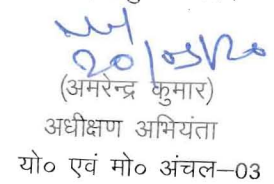 20/05/20
(अमरेन्द्र कुमार)
अधीक्षण अभियंता
यो० एवं मो० अंचल–03